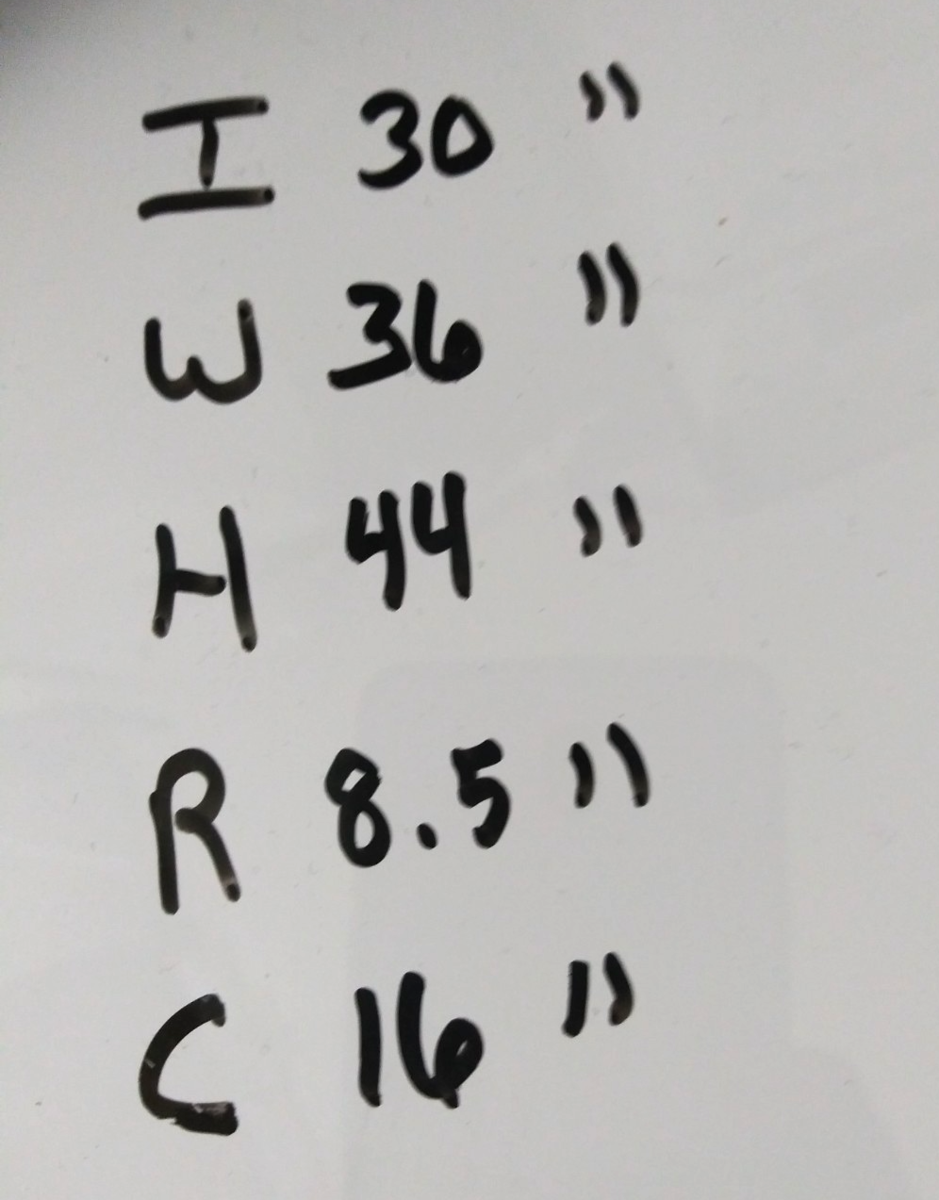 I 30 "
W 36 "
H 44 "
R 8.5 "
C 16 "